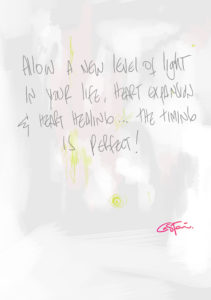 Allow A New level of light
IN YOUR life, HEART EXPANSION
& HEART HEALING... THE TIMING
IS PERFECT!